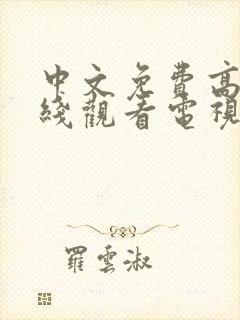 中文免费高
线观看电视
羅雲淑